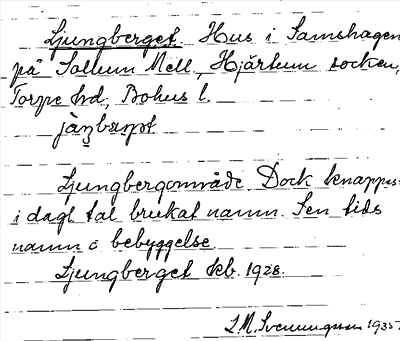 Ljungberget. Hus i Samshagen
på Sollum Mell., Hjärtum socken,
Torpe hd, Bohus l.
Ljungbergområde. Dock knappas
i dagl. tal brukat namn. Sen tids
namn å bebyggelse.
Ljungberget kb. 1928.
1935